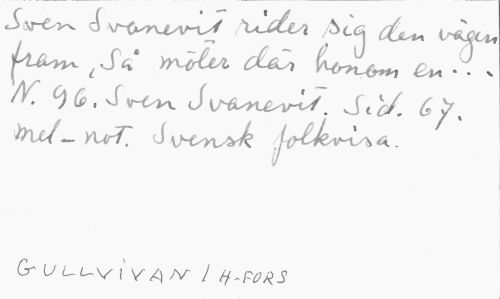 Sven Svanevit rider sig den vägen
fram, Så möter där honom en...
N. 96. Sven Svanevit. Sid. 67.
mel-not. Svensk folkvisa.
GULLVIVAN / H-FORS